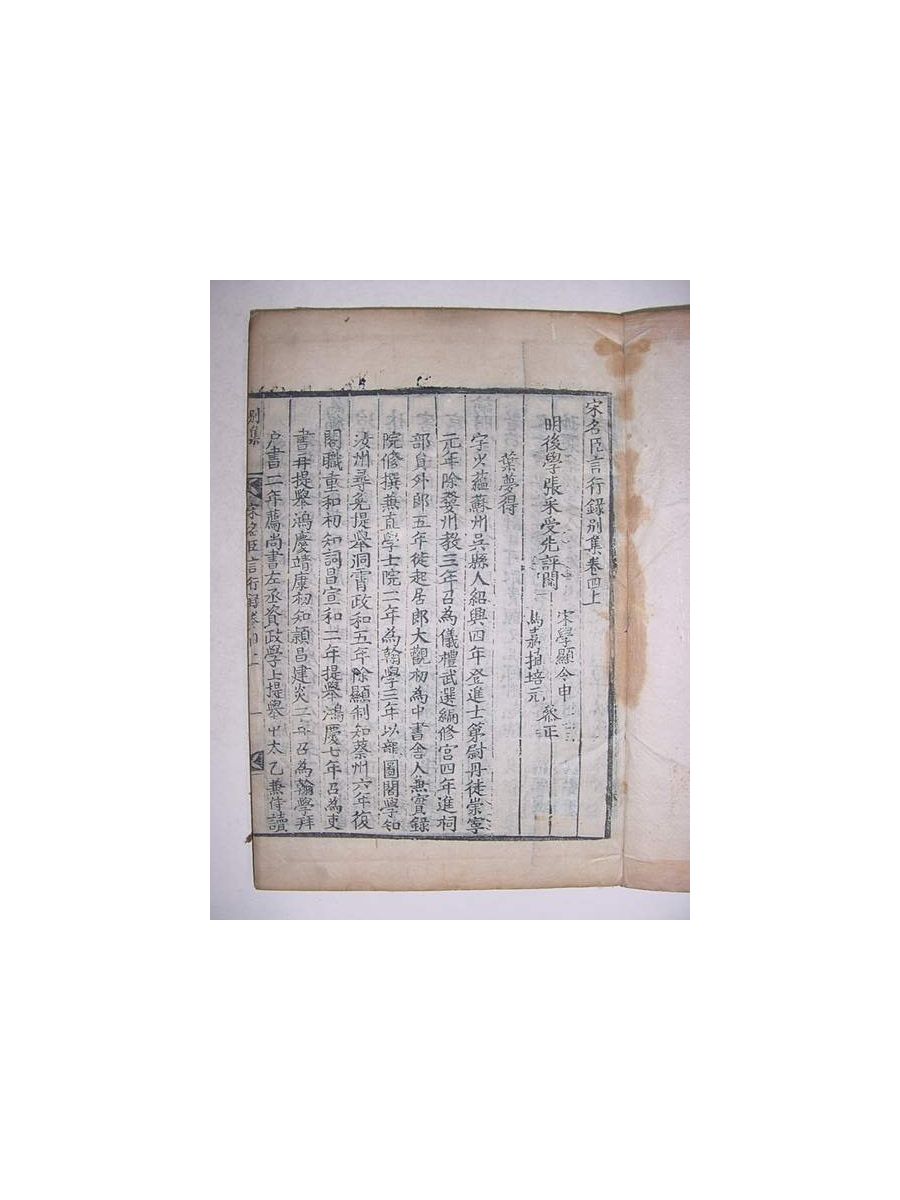 宋名臣言行錄别集卷四上
明後學張采受先評閱 宋學顯令申
馬嘉植培元 叅正
葉夢得
字少蘊蘇州吳縣人紹興四年登進士第尉丹徒崇寧
元年除婺州教三年召為儀禮武選編修官四年進祠
部員外郎五年徙起居郎大觀初為中書舍人兼實錄
院修撰兼直學士院二年為翰學三年以龍圖閣學知
汝州尋免提舉洞霄政和五年除顯制知蔡州六年復
閣職重和初知潁昌宣和二年提舉鴻慶七年召為吏
書再提舉鴻慶靖康初知潁昌建炎二年召為翰學拜
户書二年薦尚書左丞資政學士提舉中太乙兼侍讀
别集 宋名臣言行錄卷四上 一